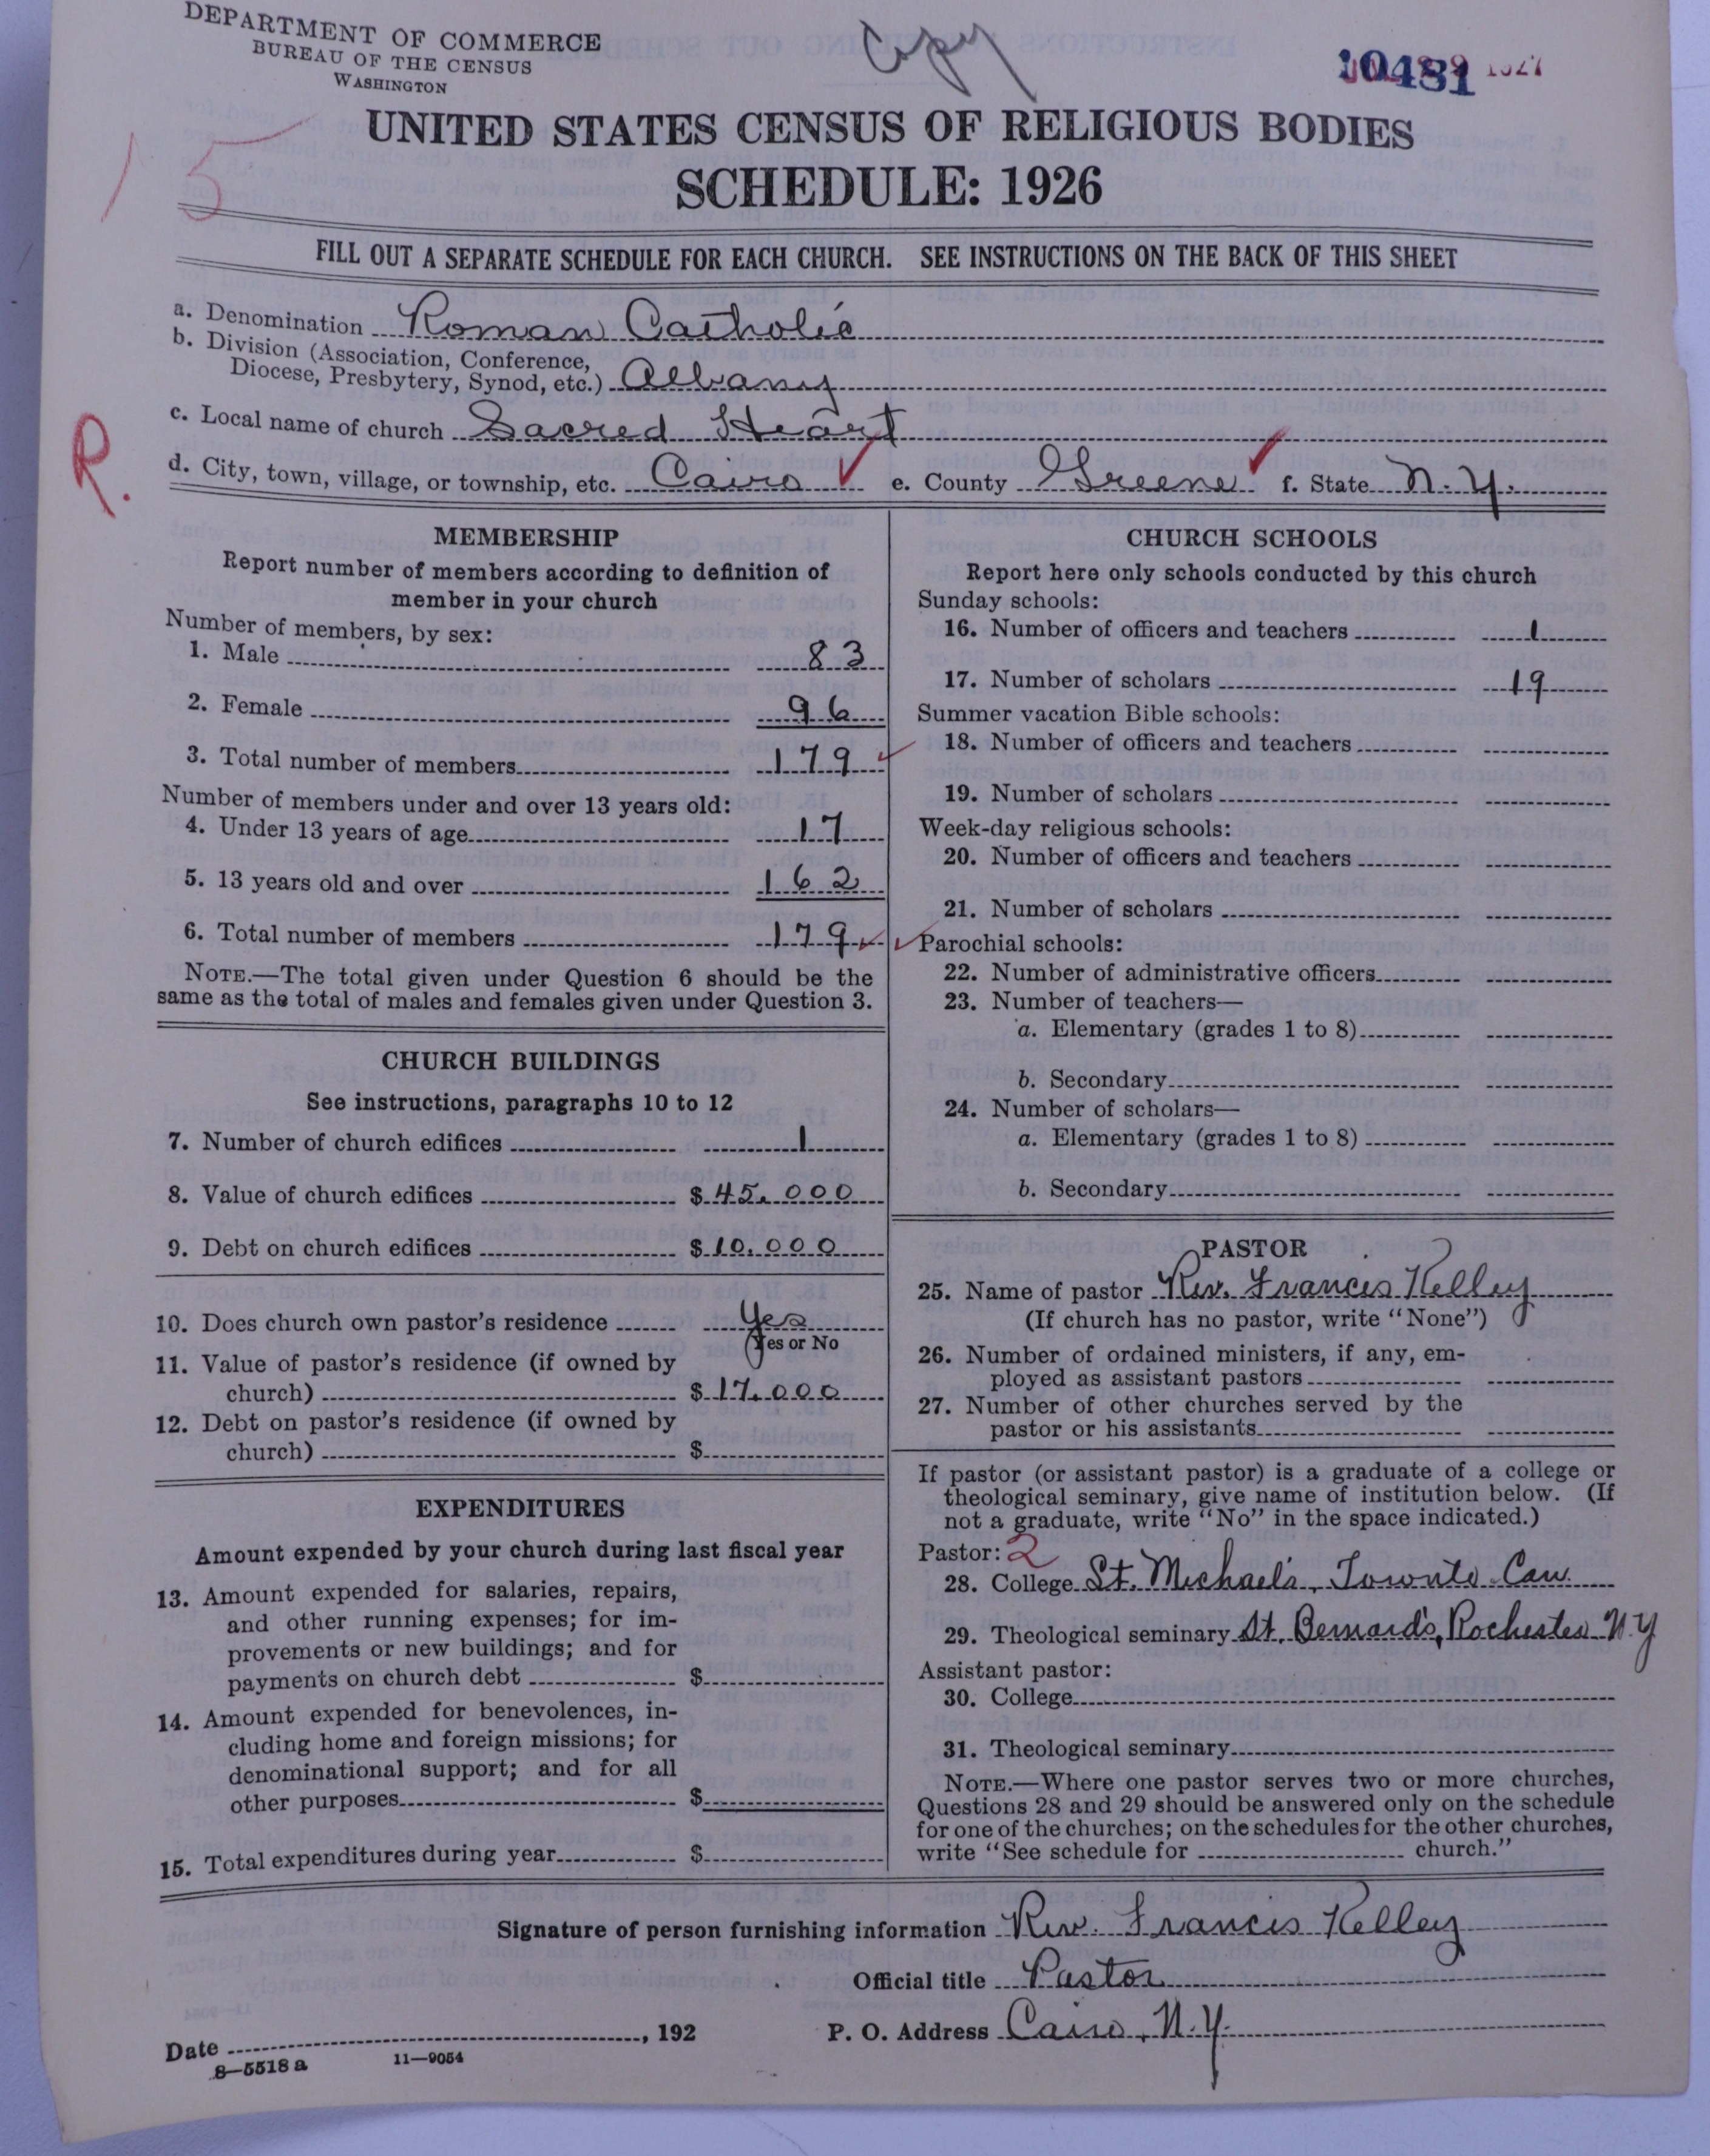 DEPARTMENT OF COMMERCE
BUREAU OF THE CENSUS
WASHINGTON
Copy
10481
1927
15
UNITED STATES CENSUS OF RELIGIOUS BODIES
SCHEDULE: 1926
FILL OUT A SEPARATE SCHEDULE FOR EACH CHURCH. SEE INSTRUCTIONS ON THE BACK OF THIS SHEET
a. Denomination Roman Catholic
b. Division (Association, Conference,
Diocese, Presbytery, Synod, etc.) Albany
R.
c. Local name of church Sacred Heart
d. City, town, village, or township, etc. Cairo e. County Greene f. State N.Y.
MEMBERSHIP
Report number of members according to definition of
member in your church
Number of members, by sex:
1. Male 83
2. Female 96
3. Total number of members 179
Number of members under and over 13 years old:
4. Under 13 years of age 17
5. 13 years old and over 162
6. Total number of members 179
NOTE.—The total given under Question 6 should be the
same as the total of males and females given under Question 3.
CHURCH BUILDINGS
See instructions, paragraphs 10 to 12
7. Number of church edifices 1
8. Value of church edifices $45.000
9. Debt on church edifices $10.000
10. Does church own pastor's residence Yes
Yes or No
11. Value of pastor's residence (if owned by
church) $17.000
12. Debt on pastor's residence (if owned by
church) $
EXPENDITURES
Amount expended by your church during last fiscal year
13. Amount expended for salaries, repairs,
and other running expenses; for im-
provements or new buildings; and for
payments on church debt $
14. Amount expended for benevolences, in-
cluding home and foreign missions; for
denominational support; and for all
other purposes $
15. Total expenditures during year $
CHURCH SCHOOLS
Report here only schools conducted by this church
Sunday schools:
16. Number of officers and teachers 1
17. Number of scholars 19
Summer vacation Bible schools:
18. Number of officers and teachers
19. Number of scholars
Week-day religious schools:
20. Number of officers and teachers
21. Number of scholars
Parochial schools:
22. Number of administrative officers
23. Number of teachers—
a. Elementary (grades 1 to 8)
b. Secondary
24. Number of scholars—
a. Elementary (grades 1 to 8)
b. Secondary
PASTOR
25. Name of pastor Rev. Francis Kelley
(If church has no pastor, write "None")
26. Number of ordained ministers, if any, em-
ployed as assistant pastors
27. Number of other churches served by the
pastor or his assistants
If pastor (or assistant pastor) is a graduate of a college or
theological seminary, give name of institution below. (If
not a graduate, write "No" in the space indicated.)
Pastor: 2
28. College St. Michael's, Toronto Can.
29. Theological seminary St. Bernard's, Rochester N.Y
Assistant pastor:
30. College
31. Theological seminary
NOTE.—Where one pastor serves two or more churches,
Questions 28 and 29 should be answered only on the schedule
for one of the churches; on the schedules for the other churches,
write "See schedule for church."
Signature of person furnishing information Rev. Francis Kelley
Official title Pastor
Date , 192 P. O. Address Cairo, N.Y.
8—5518 a 11—9054